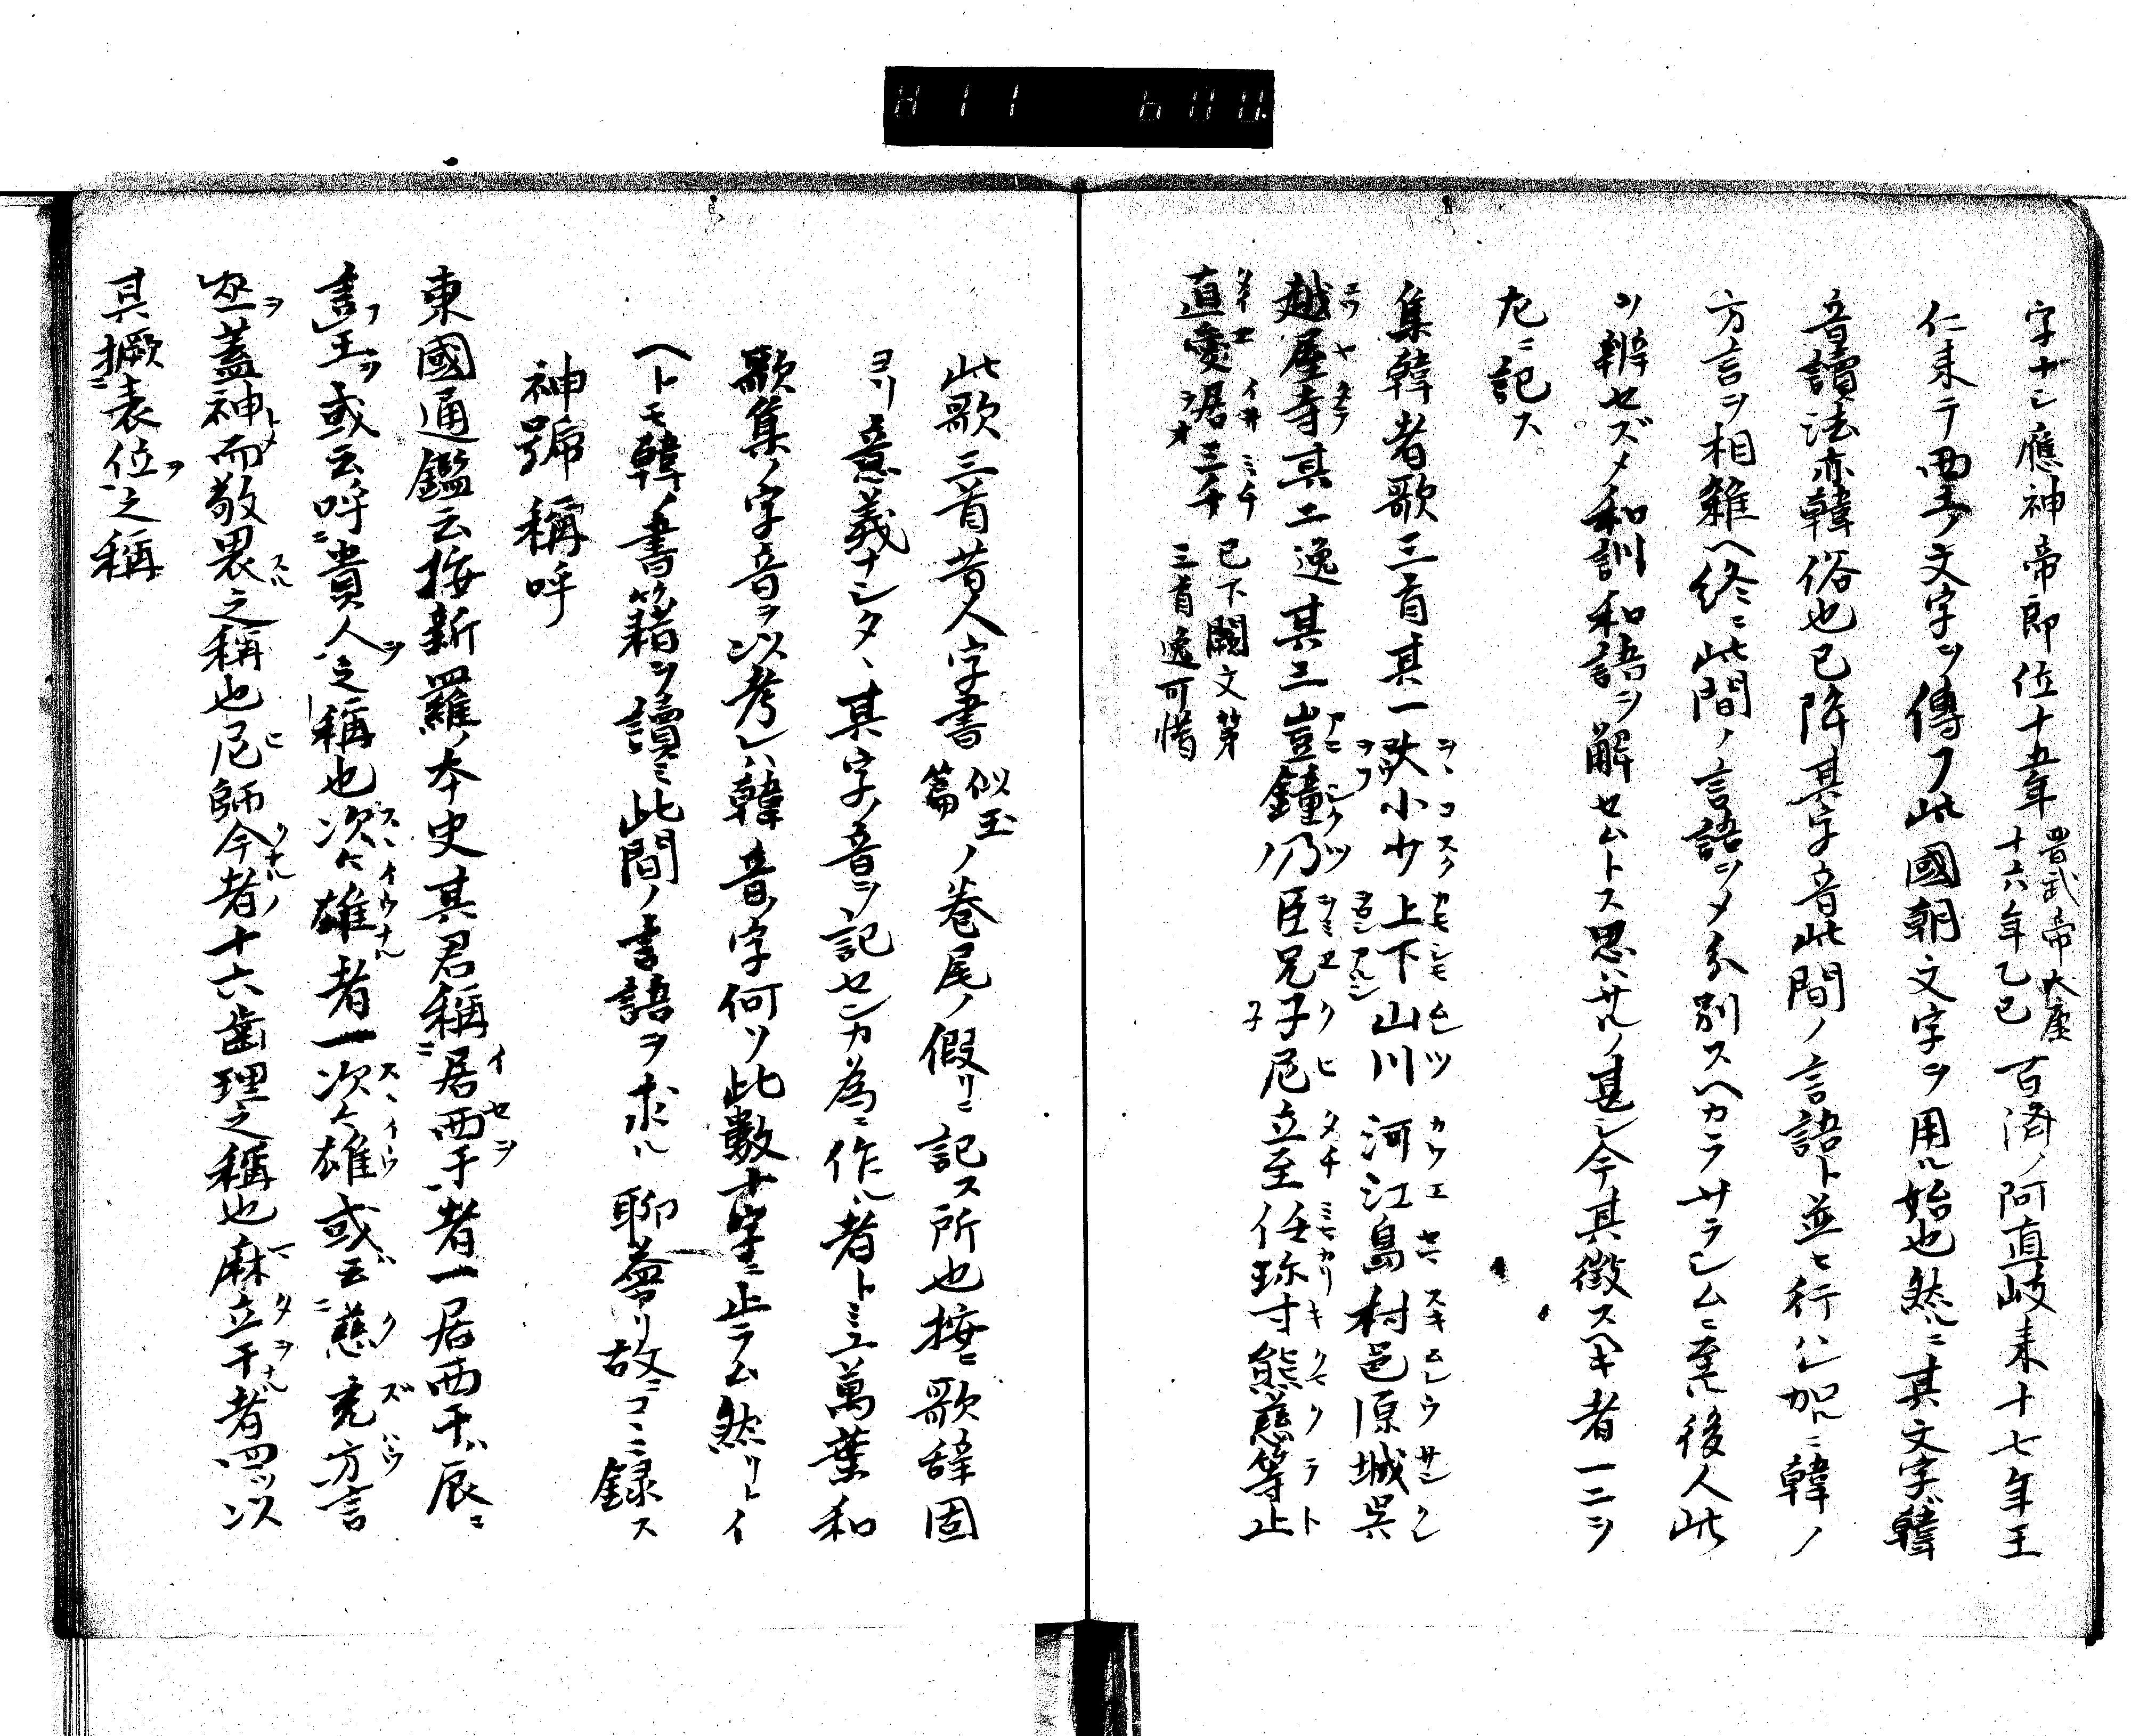 字ナシ應神帝即位十五年 晋武帝大康十六年乙巳 百済ノ阿直岐来十七年王
仁来テ西土ノ文字ヲ傳フ此國朝文字ヲ用ル始也然ルニ其文字韓
音讀法亦韓俗也已降其字音此間ノ言語ト並ヒ行ハレ加ルニ韓ノ
方言ヲ相雜ヘ終ニ此間ノ言語ヲメ分別スヘカラサラシムニ至ル後人此
ヲ辨セズメ和訓和語ヲ解セムトス思ハサルノ甚シ今其徴スヘキ者一二ヲ
左ニ記ス
集韓者歌三首其一 小少上下山川河江島村邑原城呉
越屋寺其二逸其三豈鐘乃臣兄子尼立至任珎寸熊慈等止
直愛居三千 已下闕文第三首逸可惜
此歌三首昔人字書 似玉篇 ノ巻尾ノ假リニ記ス所也按ニ歌辞固
ヨリ意義ナシタヽ其字ノ音ヲ記センカ為ニ作ル者トミユ萬葉和
歌集ノ字音ヲ以考レハ韓音ノ字何ソ此數十字ニ止ラム然リトイ
ヘトモ韓ノ書籍ヲ讀ミ此間ノ言語ヲ求ル聊益アリ故ニコヽニ録ス
神號稱呼
東國通鑑云按新羅ノ本史其君稱ニ居西干ヲ者一居西干ハ辰ニ
言フ王ヲ或云呼ニ貴人ヲ之稱也次次雄者一次次雄或云慈充方言
巫ヲ蓋神トメ而敬畏スル之稱也尼師今者ノ十六歯理之稱也麻立干者四ツ以
其橛ニ表位ヲ之稱